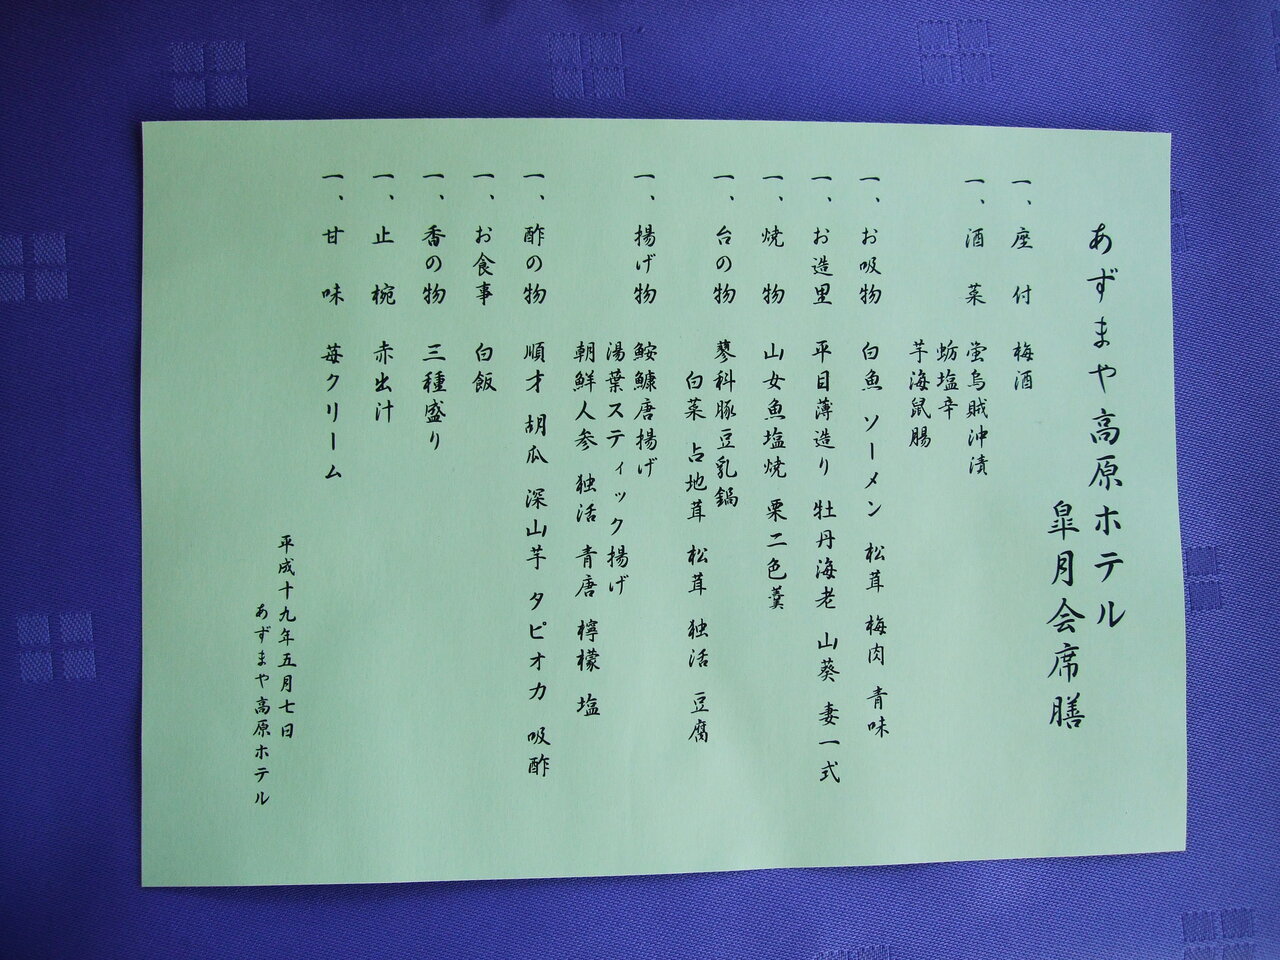 あずまや高原ホテル
皐月会席膳
一、座 付 梅酒
一、酒 菜 蛍烏賊沖漬
蛎塩辛
芋海鼠腸
一、お吸物 白魚 ソーメン 松茸 梅肉 青味
一、お造里 平目薄造り 牡丹海老 山葵 妻一式
一、焼 物 山女魚塩焼 栗二色羹
一、台の物 蓼科豚豆乳鍋
白菜 占地茸 松茸 独活 豆腐
一、揚げ物 鮟鱇唐揚げ
湯葉スティック揚げ
朝鮮人参 独活 青唐 檸檬 塩
一、酢の物 順才 胡瓜 深山芋 タピオカ 吸酢
一、お食事 白飯
一、香の物 三種盛り
一、止 椀 赤出汁
一、甘 味 苺クリーム
平成十九年五月七日
あずまや高原ホテル